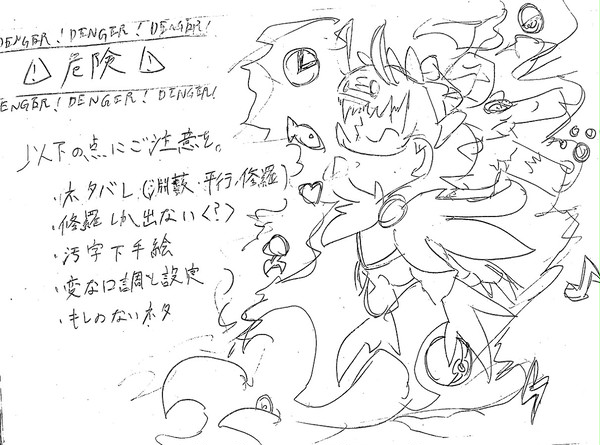 DENGER! DENGER! DENGER!
危険
DENGER! DENGER! DENGER!
以下の点にご注意を。
・ネタバレ(渊薮、平行、修羅)
・修羅しか出ない<?>
・汚字下手絵
・変な口調と設定
・もしのないネタ